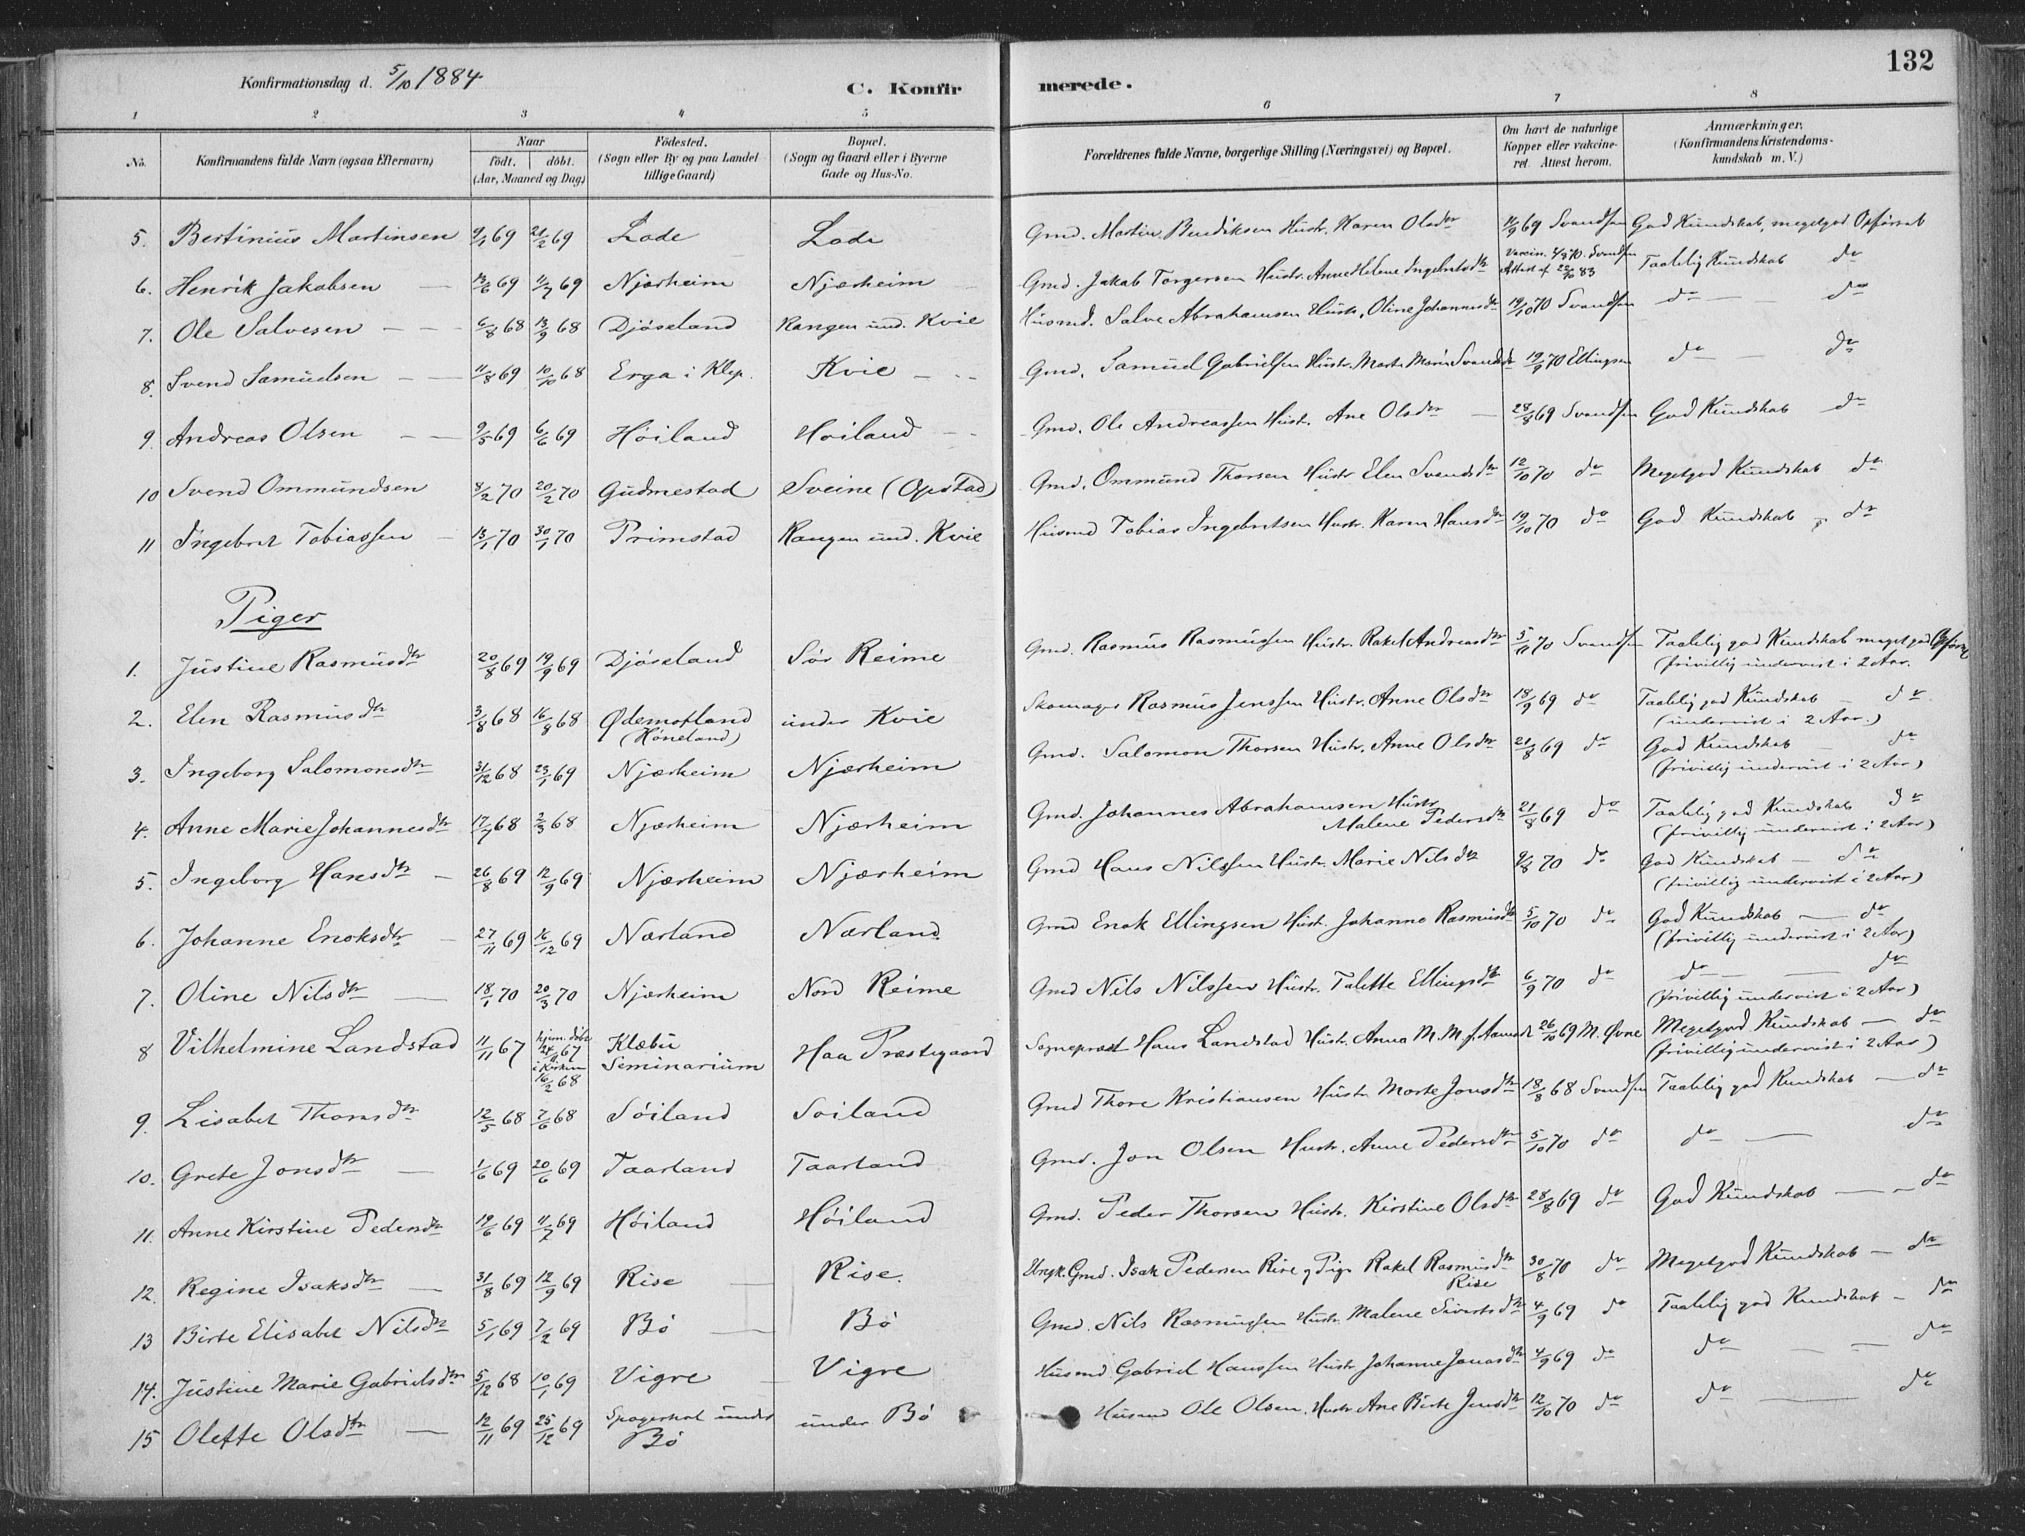 132
Konfirmationsdag d. 5/10 1884. C. Konfirmerede.
1 2 3 4 5 6 7 8
No. Konfirmandens fulde Navn (ogsaa Efternavn) Naar födt. döbt. (Aar, Maaned og Dag) Födested. (Sogn eller By og paa Landet tillige Gaard) Bopæl. (Sogn og Gaard eller i Byerne Gade og Hus-No. Forældrenes fulde Navne, borgerlige Stilling (Næringsvei) og Bopæl. Om havt de naturlige Kopper eller vakcineret. Attest herom. Anmærkninger. (Konfirmandens Kristendomskundskab m. V.)
5. Bertinius Martinsen 9/1 69 21/2 69 Lode Lode Gmd. Martin Bendiksen Hustr. Karen Olsdtr 11/9 69 Svendsen God Kundskab, megetgod Opførsel
6. Henrik Jakobsen 69 11/7 69 Njærheim Njærheim Gmd. Jakob Torgersen Hustr. Anne Helene Ingebretsdtr Vaccin. 70. Svendsen Attest af 22/10 83 Taalelig Kundskab do
7. Ole Salvesen 6/8 68 13/9 68 Djøseland Rangen und. Kvie Husmd. Salve Abrahamsen Hustr. Oline Johannesdtr 19/10 70 Svendsen do do
8. Svend Samuelsen 11/8 69 10/10 68 Erga i Klep. Kvie Gmd. Samuel Gabrielsen Hustr. Marte Marie Svendsdtr 19/9 70 Ellingsen do do
9. Andreas Olsen 9/5 69 6/6 69 Höiland Höiland Gmd. Ole Andreassen Hustr. Ane Olsdtr 28/8 69 Svendsen God Kundskab do
10 Svend Ommundsen 8/2 70 20/2 70 Gudmestad Sveine (Opstad) Gmd. Ommund Thorsen Hustr Elen Svendsdtr 12/10 70 do Megetgod Kundskab do
11 Ingebret Tobiassen 13/1 70 30/1 70 Primstad Rangen und. Kvie Husmd Tobias Ingebretsen Hustr. Karen Hansdtr 19/10 70 do God Kundskab do
Piger
1. Justine Rasmusdtr 20/8 69 19/9 69 Djøseland Sör Reime Gmd. Rasmus Rasmussen Hustr. Rakel Andreasdtr 5/10 70 Svendsen Taalelig god Kundskab meget god Opførsel
(frivillig undervist i 2 Aar.
2. Elen Rasmusdtr 3/8 68 16/8 68 Ødemotland (Höneland) under Kvie Skomager Rasmus Jenssen Hustr. Anne Olsdtr 18/9 69 do Taalelig god Kundskab do
(undervist i 2 Aar.)
3. Ingeborg Salomonsdtr 31/12 68 23/1 69 Njærheim Njærheim Gmd. Salomon Thorsen Hustr. Anne Olsdtr 21/8 69 do God Kundskab do
(frivillig undervist i 2 Aar)
4. Anne Marie Johannesdtr 17/7 68 2/3 68 Njærheim Njærheim Gmd. Johannes Abrahamsen Hustr. Malene Pedersdtr 21/8 69 do Taalelig god Kundskab do
(frivillig undervist i 2 Aar)
5. Ingeborg Hansdtr 26/8 69 12/9 69 Njærheim Njærheim Gmd Hans Nilssen Hustr. Marie Nilsdtr 9/8 70 do God Kundskab do
(frivillig undervist i 2 Aar)
6. Johanne Enoksdtr 27/11 69 16/12 69 Nærland Nærland Gmd Enok Ellingsen Hustr. Johanne Rasmusdtr 5/10 70 do God Kundskab do
(frivillig undervist i 2 Aar)
7. Oline Nilsdtr 18/1 70 20/3 70 Njærheim Nord Reime Gmd Nils Nilssen Hustr. Talette Ellingsdtr 6/9 70 do do do
(frivillig undervist i 2 Aar)
8 Vilhelmine Landstad 11/11 67 hjem. döbt 24/11 67 i Kirken 16/2 68 Klæbu Seminarium Haa Præstegaard Sognepræst Hans Landstad Hustr. Anna M. M. f. 26/10 69 M. Øvne Megetgod Kundskab do
(frivillig undervist i 2 Aar)
9. Lisabet Thorsdtr 12/5 68 7/6 68 Söiland Soiland Gmd Thore Kristiansen Hustr Marte Jonsdtr 18/8 68 Svendsen Taalelig god Kundskab do
10. Grete Jonsdtr 1/6 69 20/6 69 Taarland Taarland Gmd. Jon Olsen Hustr. Anne Pedersdtr 5/10 70 do do do
11. Anne Kirstine Pedersdtr 19/6 69 11/7 69 Höiland Höiland Gmd. Peder Thorsen Hustr. Kirstine Olsdtr 28/8 69 do God Kundskab do
12. Regine Isaksdtr 31/8 69 12/9 69 Rise Rise. Ungk. Gmd. Isak Pedersen Rise og Pige Rakel Rasmusdtr Rise 30/8 70 do Megetgod Kundskab do
13 Birte Elisabet Nilsdtr 5/1 69 7/2 69 Bö Bö Gmd. Nils Rasmussen Hustr. Malene Sivertsdtr 4/9 69 do Taalelig god Kundskab do
14. Justine Marie Gabrielsdtr 5/12 68 10/1 69 Vigre Vigre Husmd. Gabriel Hanssen Hustr. Johanne Jonasdtr 4/9 69 do do do
15 Olette Olsdtr 12/11 69 25/12 69 under Bö under Bö Husmd Ole Olsen. Hustr Ane Birte Jonsdtr 12/10 70 do do do